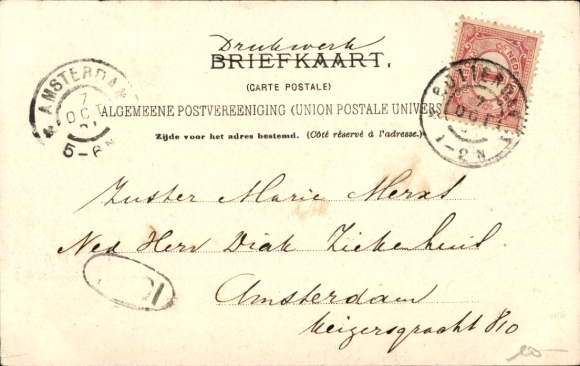 Drukwerk
BRIEFKAART.
(CARTE POSTALE)
ALGEMEENE POSTVEREENIGING (UNION POSTALE UNIVERS
Zijde voor het adres bestemd. (Côté réservé à l'adresse.)
AMSTERDAM
7
OCT
5-6N
ROTTERDAM
7
OCT
1-2N
Zuster Marie Merxt
Ned Herv Diak Ziekenhuis
Amsterdam
Keizersgracht 810